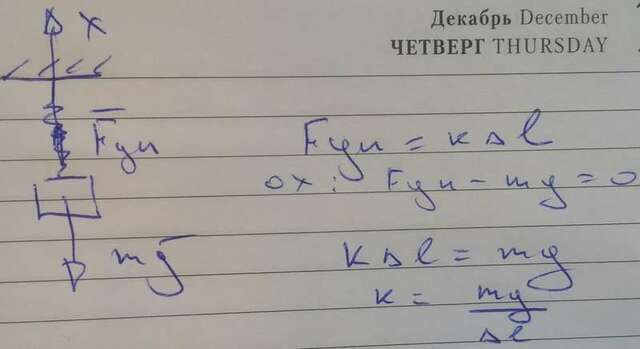 Декабрь December
ЧЕТВЕРГ THURSDAY
x
Fуп
mg
Fуп = кΔl
ox: Fуп - mg = 0
кΔl = mg
к = mg
Δl